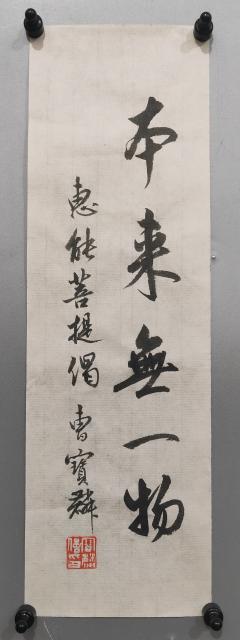 本来無一物
惠能菩提偈 曹寶麟